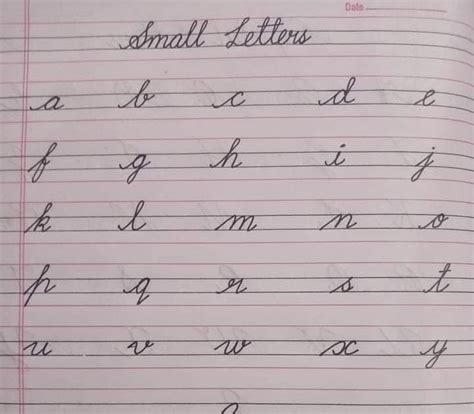 Date
Small Letters
a b c d e
f g h i j
k l m n o
p q r s t
u v w x y